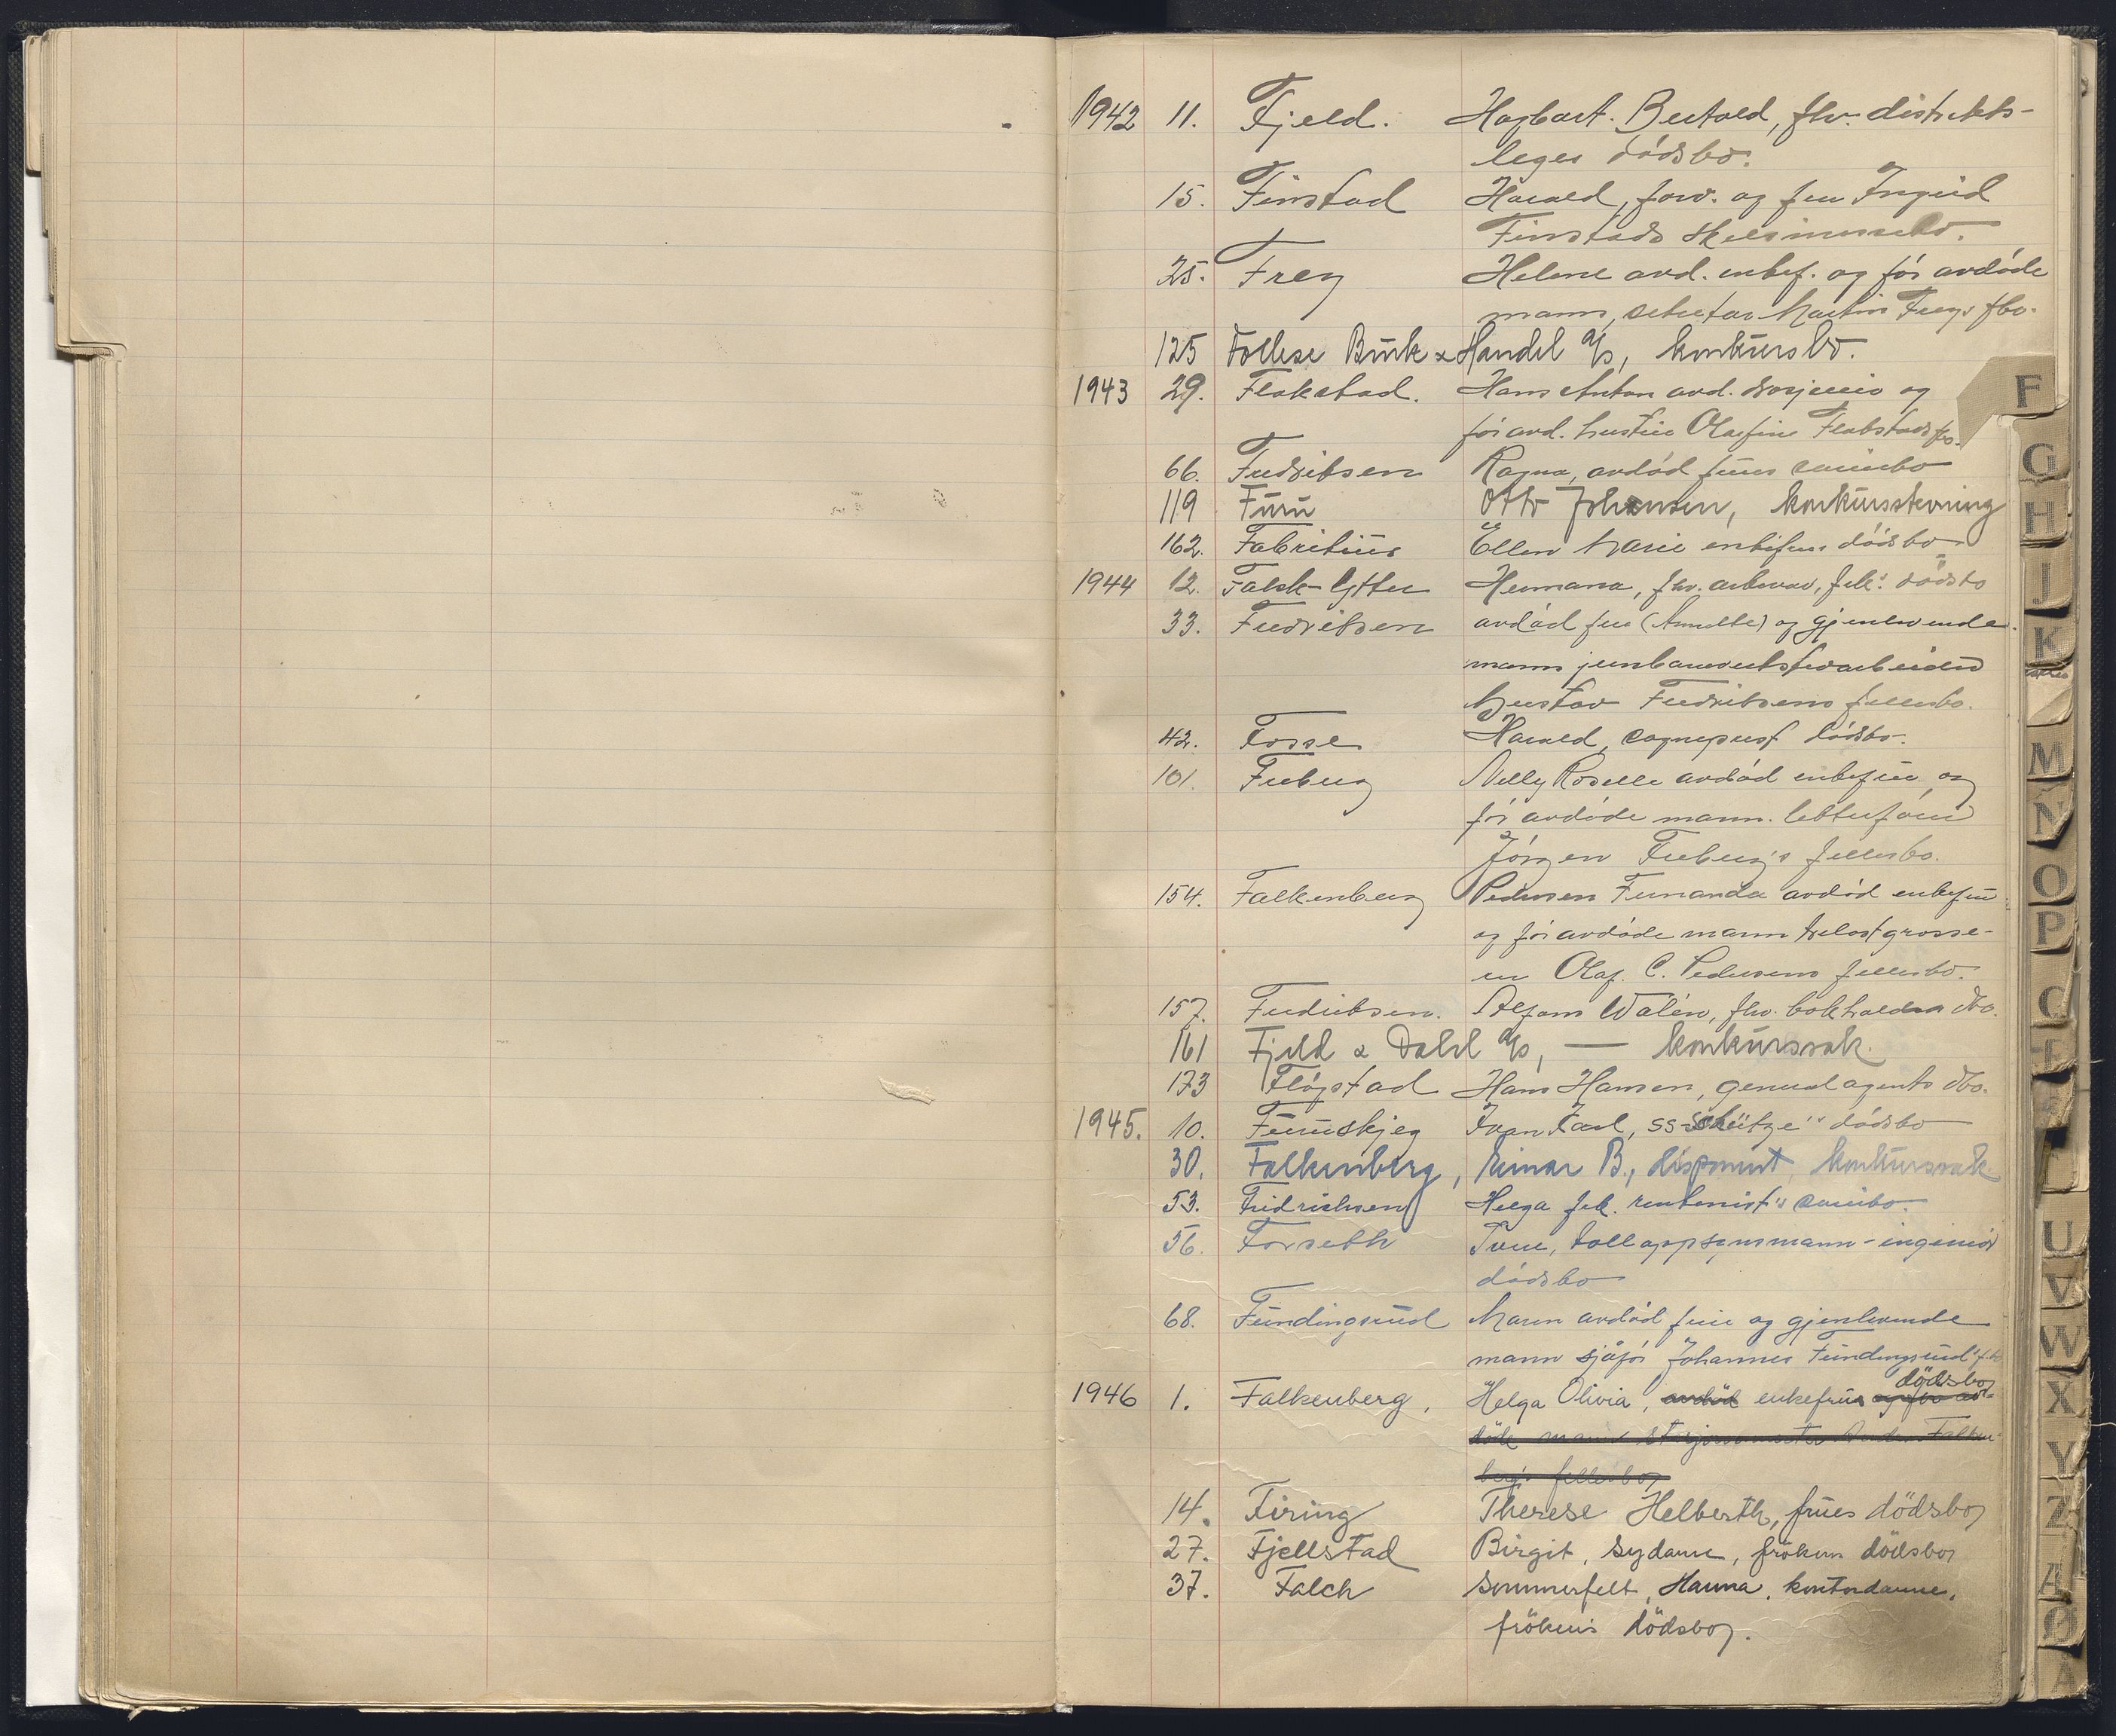 1942 11. Fjeld. Hagbart. Bertold, fhv. distrikts-
leges dödsbo.
15. Finstad Harald, forv. og fru Ingrid
Finstads skilsmissebo.
25. Frey Helene avd. enkef. og för avdöde
mann, sekretær Martin Freys fbo.
125 Follese Bruk & Handel a/s, konkursbo.
1943 29. Flakstad. Hans Anton avd. og
för avd. hustru Olafine Flakstads fbo.
66. Fredriksen Ragna, avdöd frues samebo
119 Furu Otto Johansen, konkursstevning
162. Fabritius Ellen Marie enkefrus dödsbo
1944 12. Falck-Ytter Hermana, fhv. frk's dödsbo
33. Fredriksen avdöd frue (Annette) og gjenlevende
mann jernbaneverkstedarbeider
Gustav Fredriksens fellesbo.
42. Fosse Harald, sogneprest dödsbo.
101. Freberg Nelly Roselie avdöd enkefrue og
för avdöde mann. lektor
Jörgen Freberg's fellesbo.
154. Falkenberg Pedersen Fernanda avdöd enkefru
og för avdöde mann trelastgrosse-
rer Olaf C. Pedersens fellesbo.
157. Fredriksen. Alfons Walén, fhv. bokholders dbo.
161 Fjeld & Dahl a/s, — konkurssak.
173 Flögstad Hans Hansen, generalagents dbo.
1945. 10. Furuskjeg Ivan Karl, SS-schütze's dödsbo
30. Falkenberg, Einar B., disponent, konkurssak.
53. Fridrichsen Helga frk. rentenist's samebo.
56. Forseth Tore, tolloppsynsmann-ingeniör
dödsbo
68. Fundingsrud Maren avdöd frue og gjenlevende
mann sjåför Johannes Fundingsrud's fbo
dödsbo
1946 1. Falkenberg, Helga Olivia, avdöd enkefrus og for av-
döde mann Falken-
berg's fellesbo
14. Firing Therese Helberth, frues dödsbo
27. Fjellstad Birgit, sydame, frökens dödsbo
37. Falch Sommerfelt, Hanna, kontordame,
frökens dödsbo.
F
G
H
J
K
M
N
O
P
U
V
W
X
Y
Z
Æ
Ø
Å